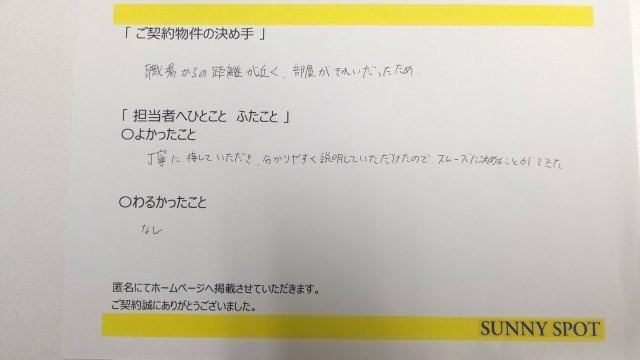 「 ご契約物件の決め手 」
職場からの距離が近く、部屋がきれいだったため。
「 担当者へひとこと ふたこと 」
〇よかったこと
丁寧に接していただき、分かりやすく説明していただけたので、スムーズに決めることができた。
〇わるかったこと
なし
匿名にてホームページへ掲載させていただきます。
ご契約誠にありがとうございました。
SUNNY SPOT